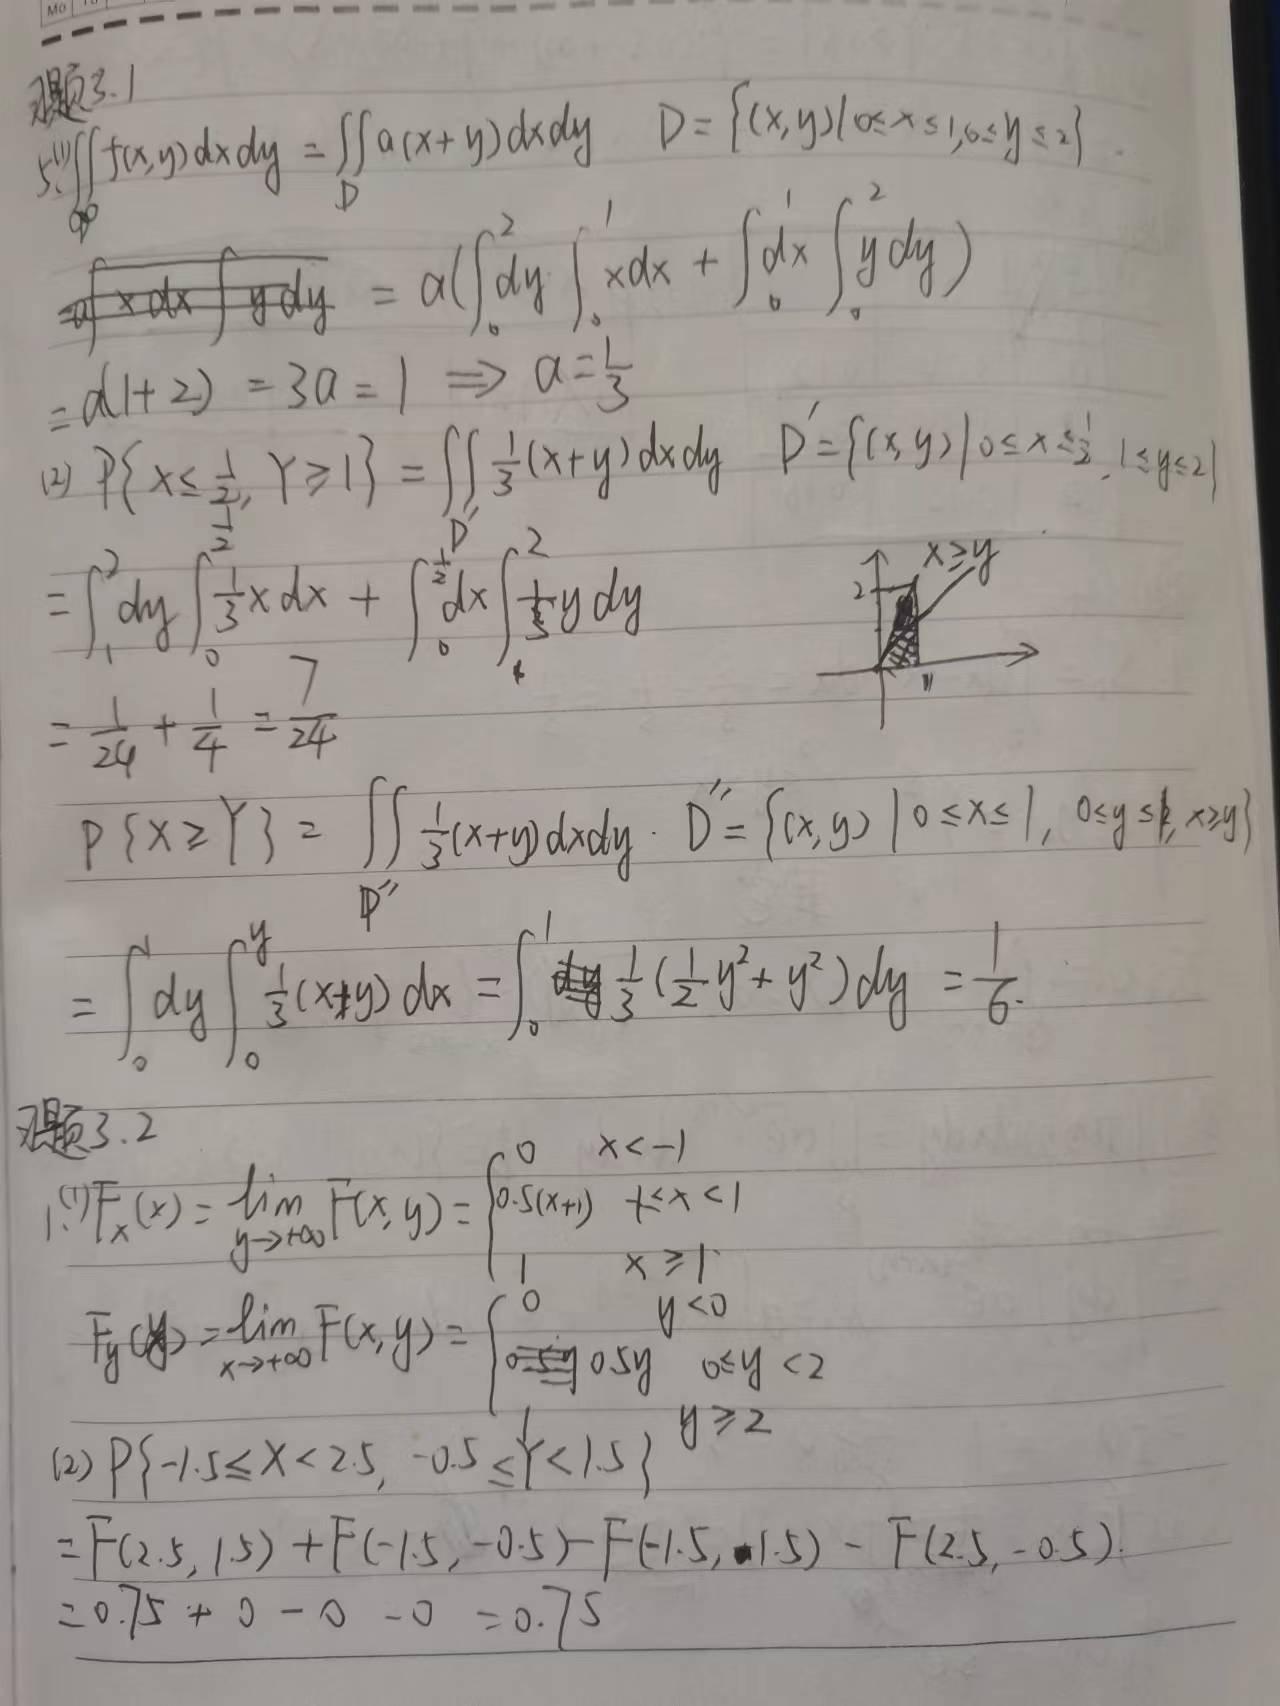 Mo
习题3.1
5.(1) ∬f(x,y)dxdy = ∬_D a(x+y)dxdy D={(x,y)|0≤x≤1,0≤y≤2}
= a(∫_0^2 dy ∫_0^1 xdx + ∫_0^1 dx ∫_0^2 ydy)
= a(1+2) = 3a = 1 ⟹ a=1/3
(2) P{X≤1/2, Y≥1} = ∬_D' 1/3(x+y)dxdy D'={(x,y)|0≤x≤1/2, 1≤y≤2}
= ∫_1^2 dy ∫_0^{1/2} 1/3 x dx + ∫_0^{1/2} dx ∫_1^2 1/3 y dy
x≥y
2
1
= 1/24 + 1/4 = 7/24
P{X≥Y} = ∬_D'' 1/3(x+y)dxdy. D''={(x,y)|0≤x≤1, 0≤y≤1, x≥y}
= ∫_0^1 dy ∫_0^y 1/3(x+y)dx = ∫_0^1 1/3(1/2 y²+y²)dy = 1/6.
习题3.2
1.(1) F_x(x) = lim_{y→+∞} F(x,y) = { 0 x<-1
0.5(x+1) -1≤x<1
1 x≥1
F_y(y) = lim_{x→+∞} F(x,y) = { 0 y<0
0.5y 0≤y<2
1 y≥2
(2) P{-1.5≤X<2.5, -0.5≤Y<1.5}
= F(2.5,1.5)+F(-1.5,-0.5)-F(-1.5,1.5)-F(2.5,-0.5).
= 0.75 + 0 - 0 - 0 = 0.75